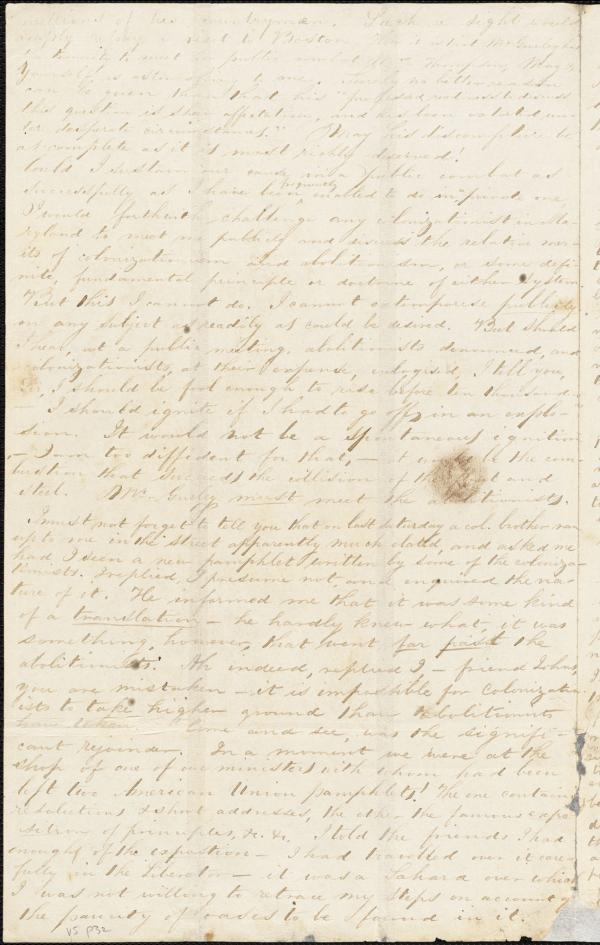 millions of his countrymen. Such a sight would
amply repay a visit to Boston. How is it that Mr. Gurley has
to meet in public combat Thompson, May, &
yourself, is astonishing to me. Surely no better reason
can be given than that his "professed readiness to discuss
this question is sheer affectation, and has been
desperate circumstances." May his discomfiture be
as complete as it is most richly deserved!
Could I sustain our cause in a public combat as
successfully as I have been frequently enabled to do in private one,
I would forthwith challenge any colonizationist in Ma-
ryland to meet me publicly and discuss the relative mer-
its of colonizationism and abolitionism, or some defi-
nite, fundamental principle or doctrine of either system.
But this I cannot do. I cannot extemporise publicly
on any subject as readily as could be desired. But should
I hear, at a public meeting, abolitionists denounced, and
colonizationists, at their expense, eulogised, I tell you,
Sir, I should be fool enough to rise before ten thousand
— I should ignite if I had to go off in an explo-
sion. It would not be a spontaneous ignition
— I am too diffident for that, — it would be the com-
bustion that succeeds the collision of the flint and
steel. Mr. Gurley must meet the abolitionists.
I must not forget to tell you that on last Saturday a col. brother ran
up to me in the street apparently much elated, and asked me
had I seen a new pamphlet written by some of the coloniza-
tionists. I replied, I presume not, and enquired the na-
ture of it. He informed me that it was some kind
of a translation — he hardly knew what, it was
something, however, that went far past the
abolitionists. Ah indeed, replied I — friend John,
you are mistaken — it is impossible for colonization-
ists to take higher ground than abolitionists
have taken. Come and see, was the signifi-
cant rejoinder. In a moment we were at the
shop of one of our ministers with whom had been
left two American Union pamphlets! The one contains
resolutions & short addresses, the other the famous expo-
sition of principles, &c. &c. I told the friends I had
enough of the exposition — I had travelled over it care-
fully in the Liberator — it was a Sahara over which
I was not willing to retrace my steps on account of
the paucity of oases to be found in it.
V5 p32